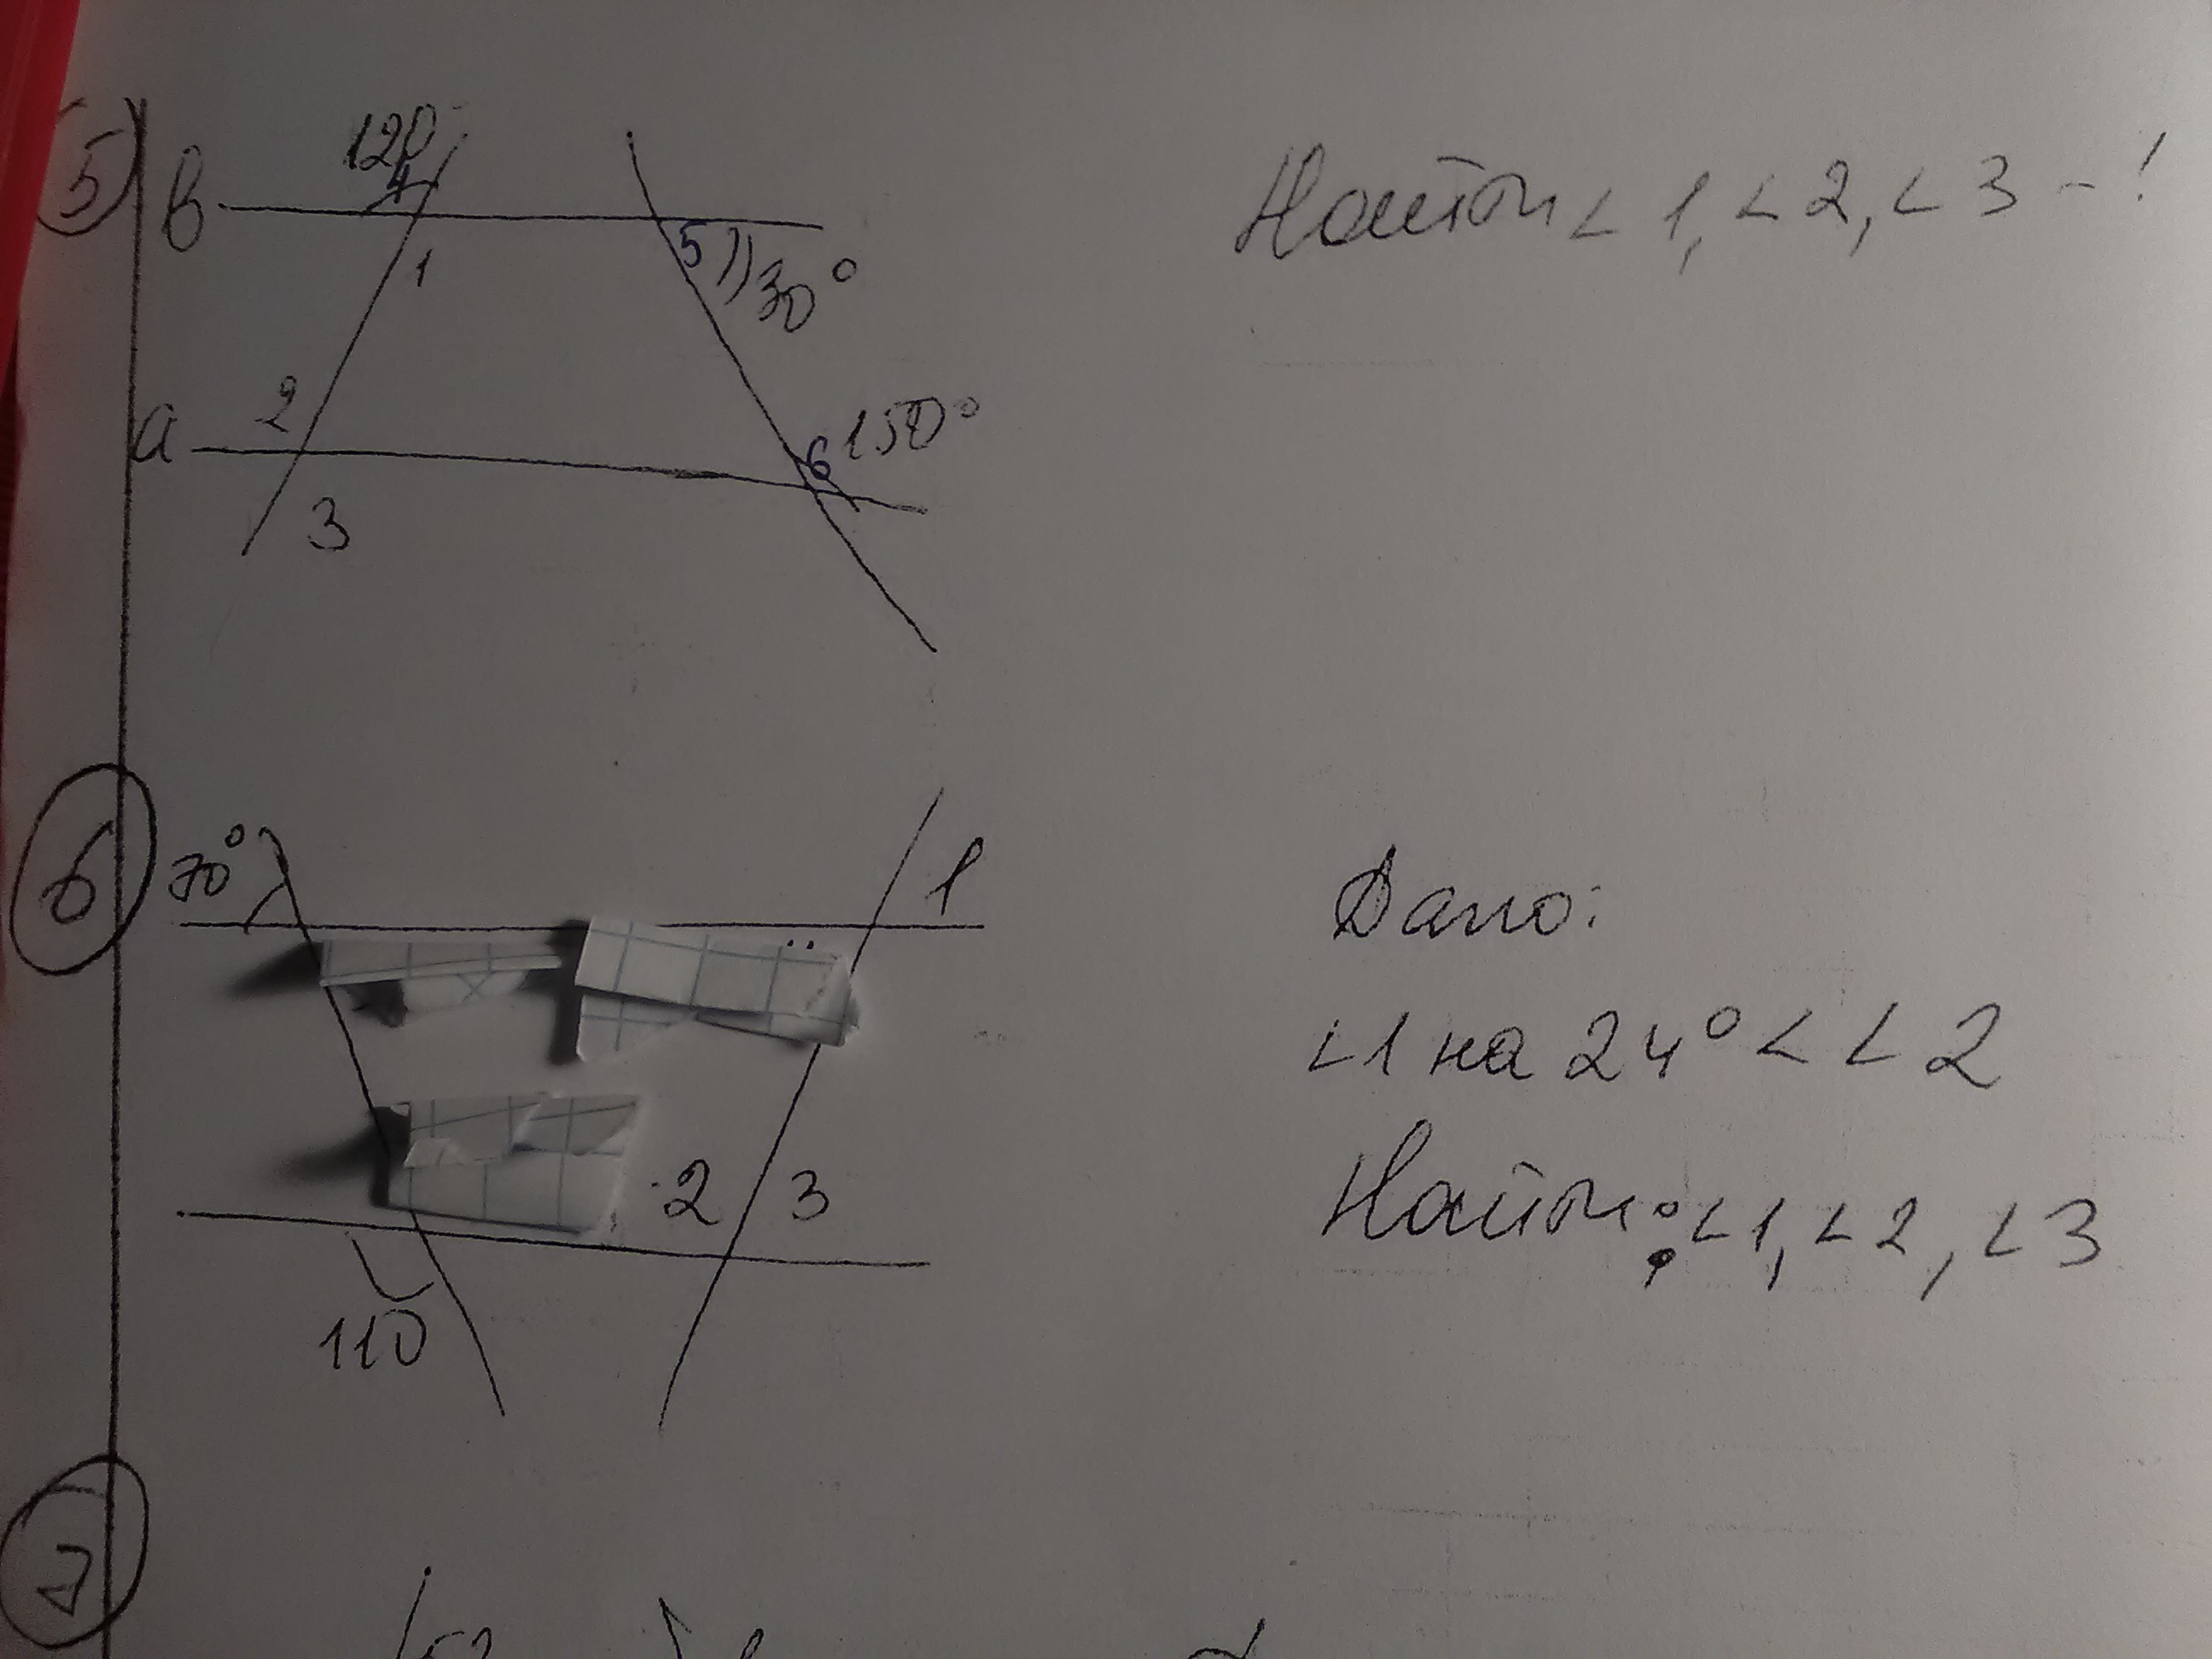 5
120
4
b
1
5
30°
2
a
150°
6
3
Найти < 1, < 2, < 3 - !
6
70°
1
2
3
110
Дано:
<1 на 24° < < 2
Найти: <1, < 2, <3
7